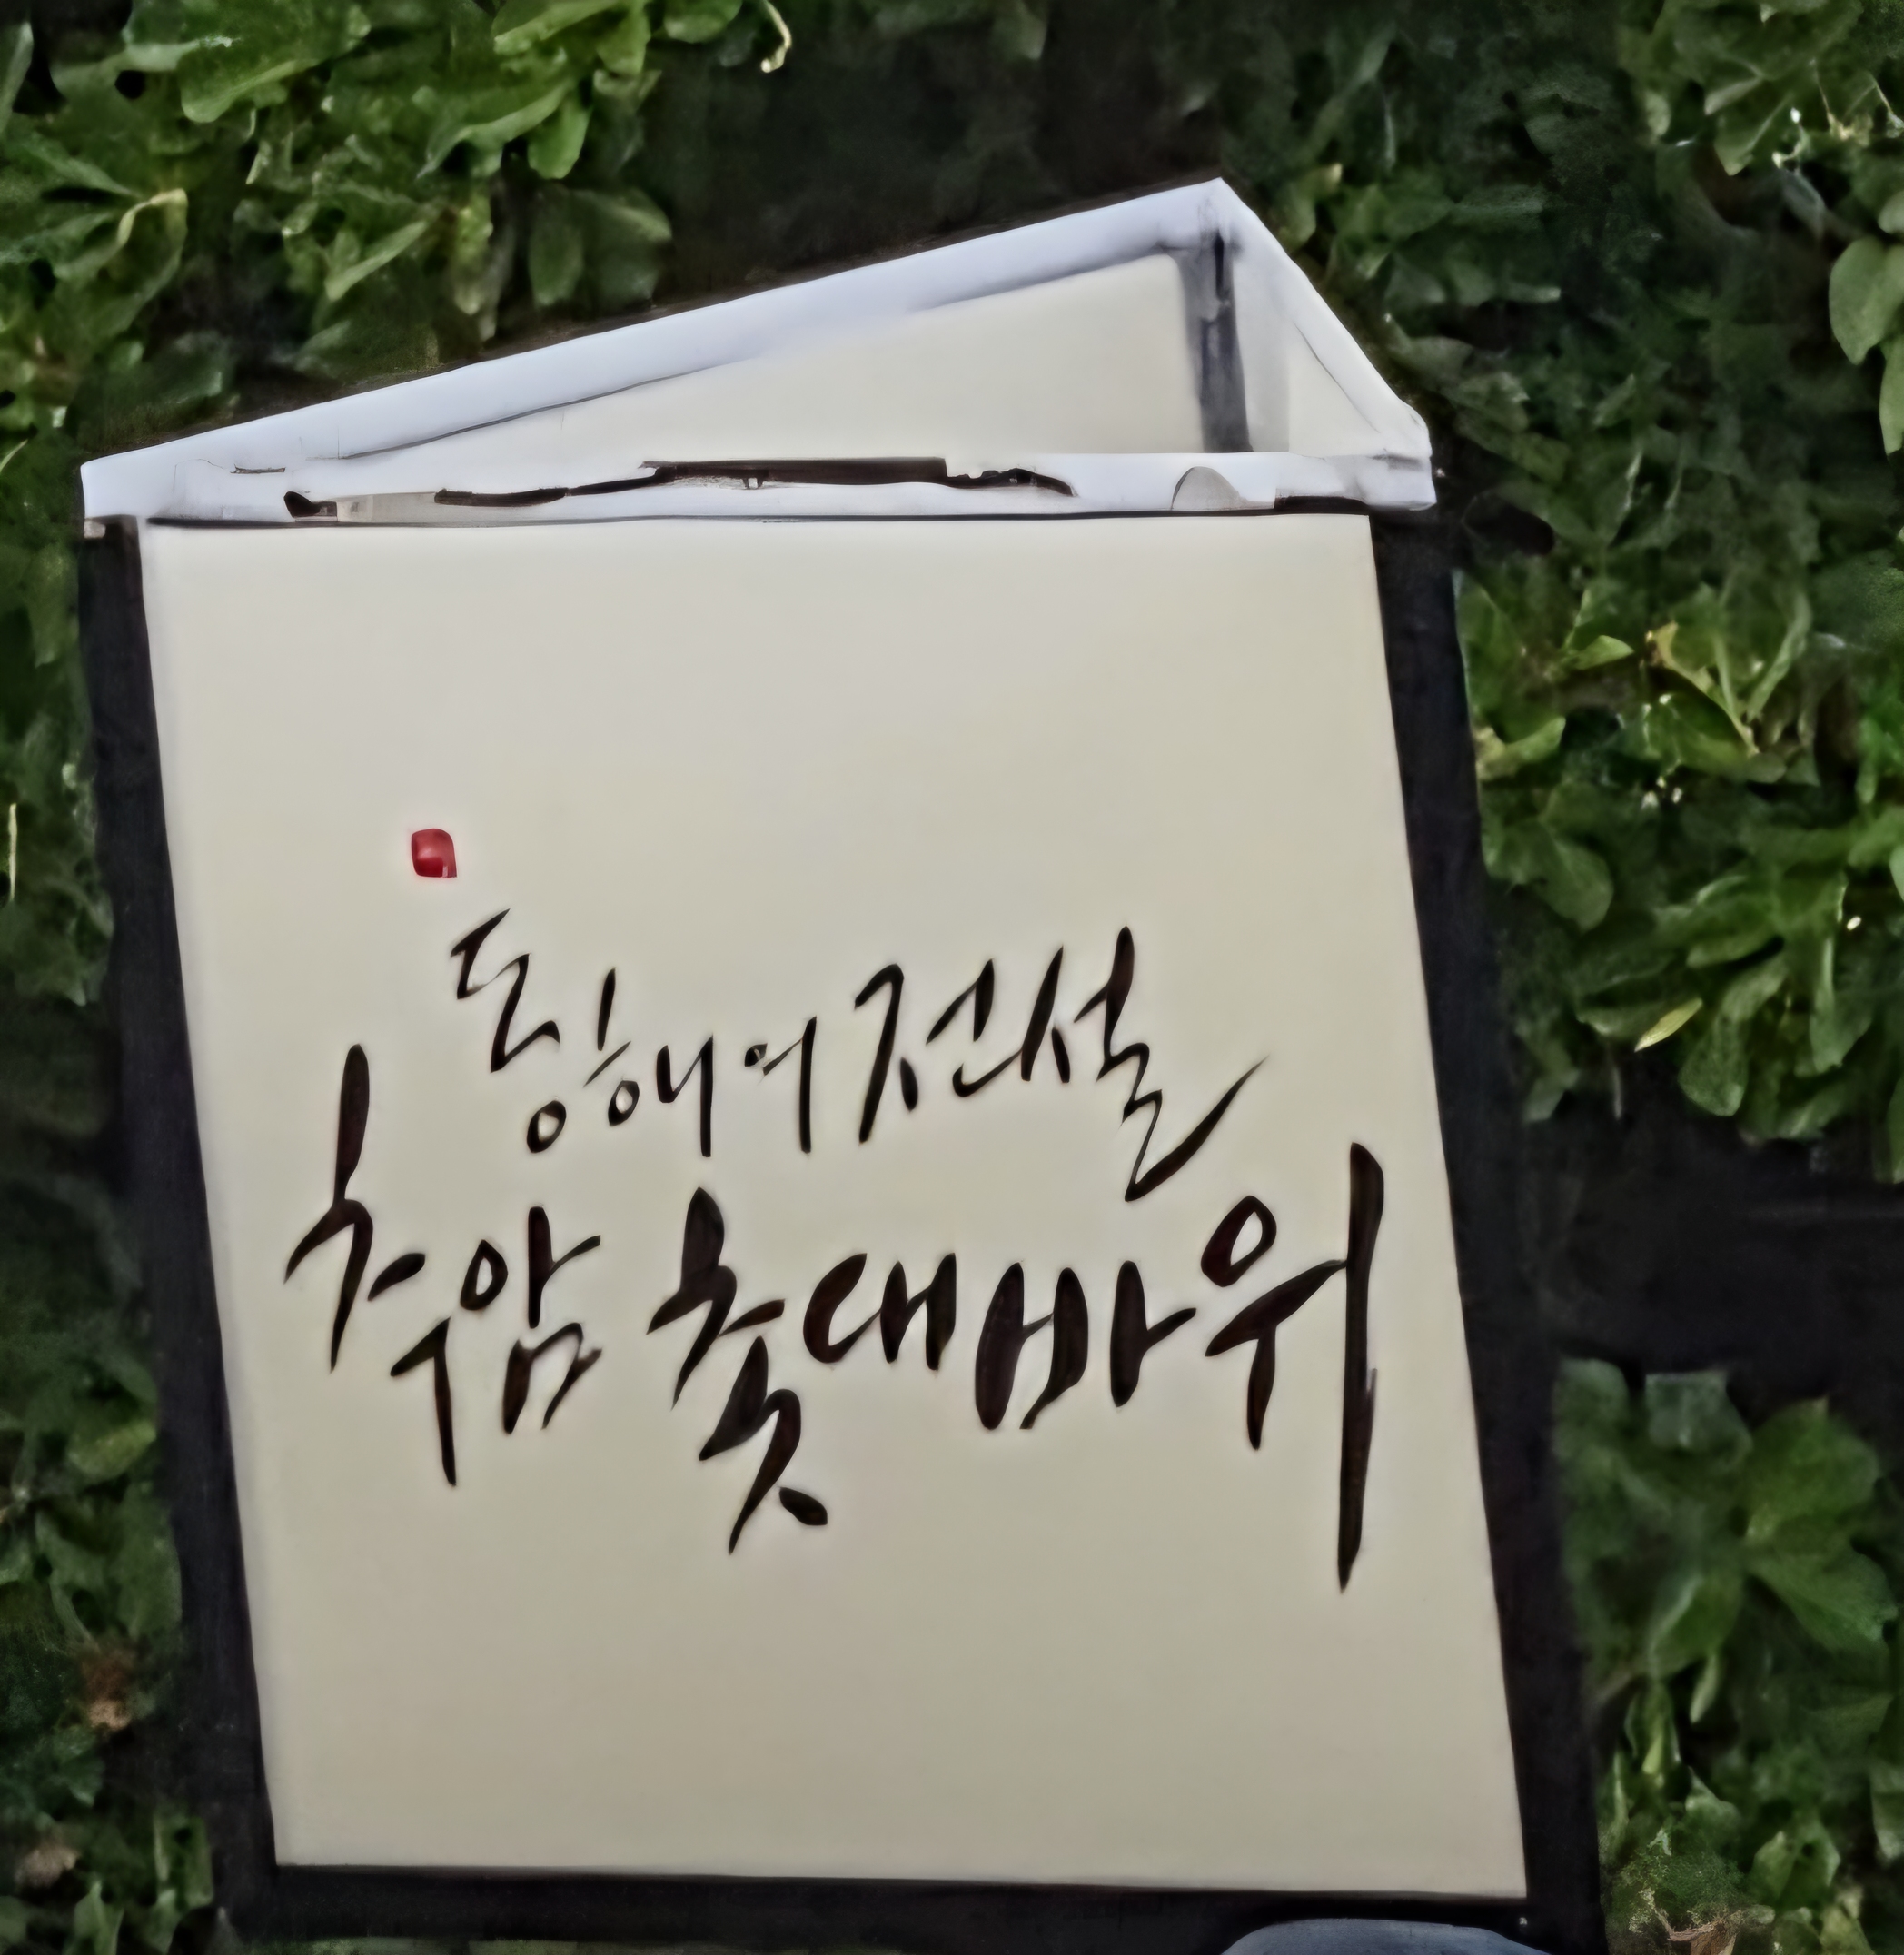 동해에 전설
추암 촛대바위